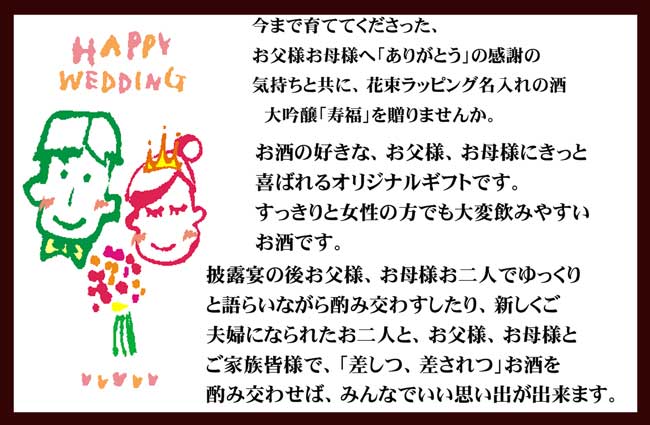 HAPPY
WEDDING
今まで育ててくださった、
お父様お母様へ「ありがとう」の感謝の
気持ちと共に、花束ラッピング名入れの酒
大吟醸「寿福」を贈りませんか。
お酒の好きな、お父様、お母様にきっと
喜ばれるオリジナルギフトです。
すっきりと女性の方でも大変飲みやすい
お酒です。
披露宴の後お父様、お母様お二人でゆっくり
と語らいながら酌み交わすしたり、新しくご
夫婦になられたお二人と、お父様、お母様と
ご家族皆様で、「差しつ、差されつ」お酒を
酌み交わせば、みんなでいい思い出が出来ます。